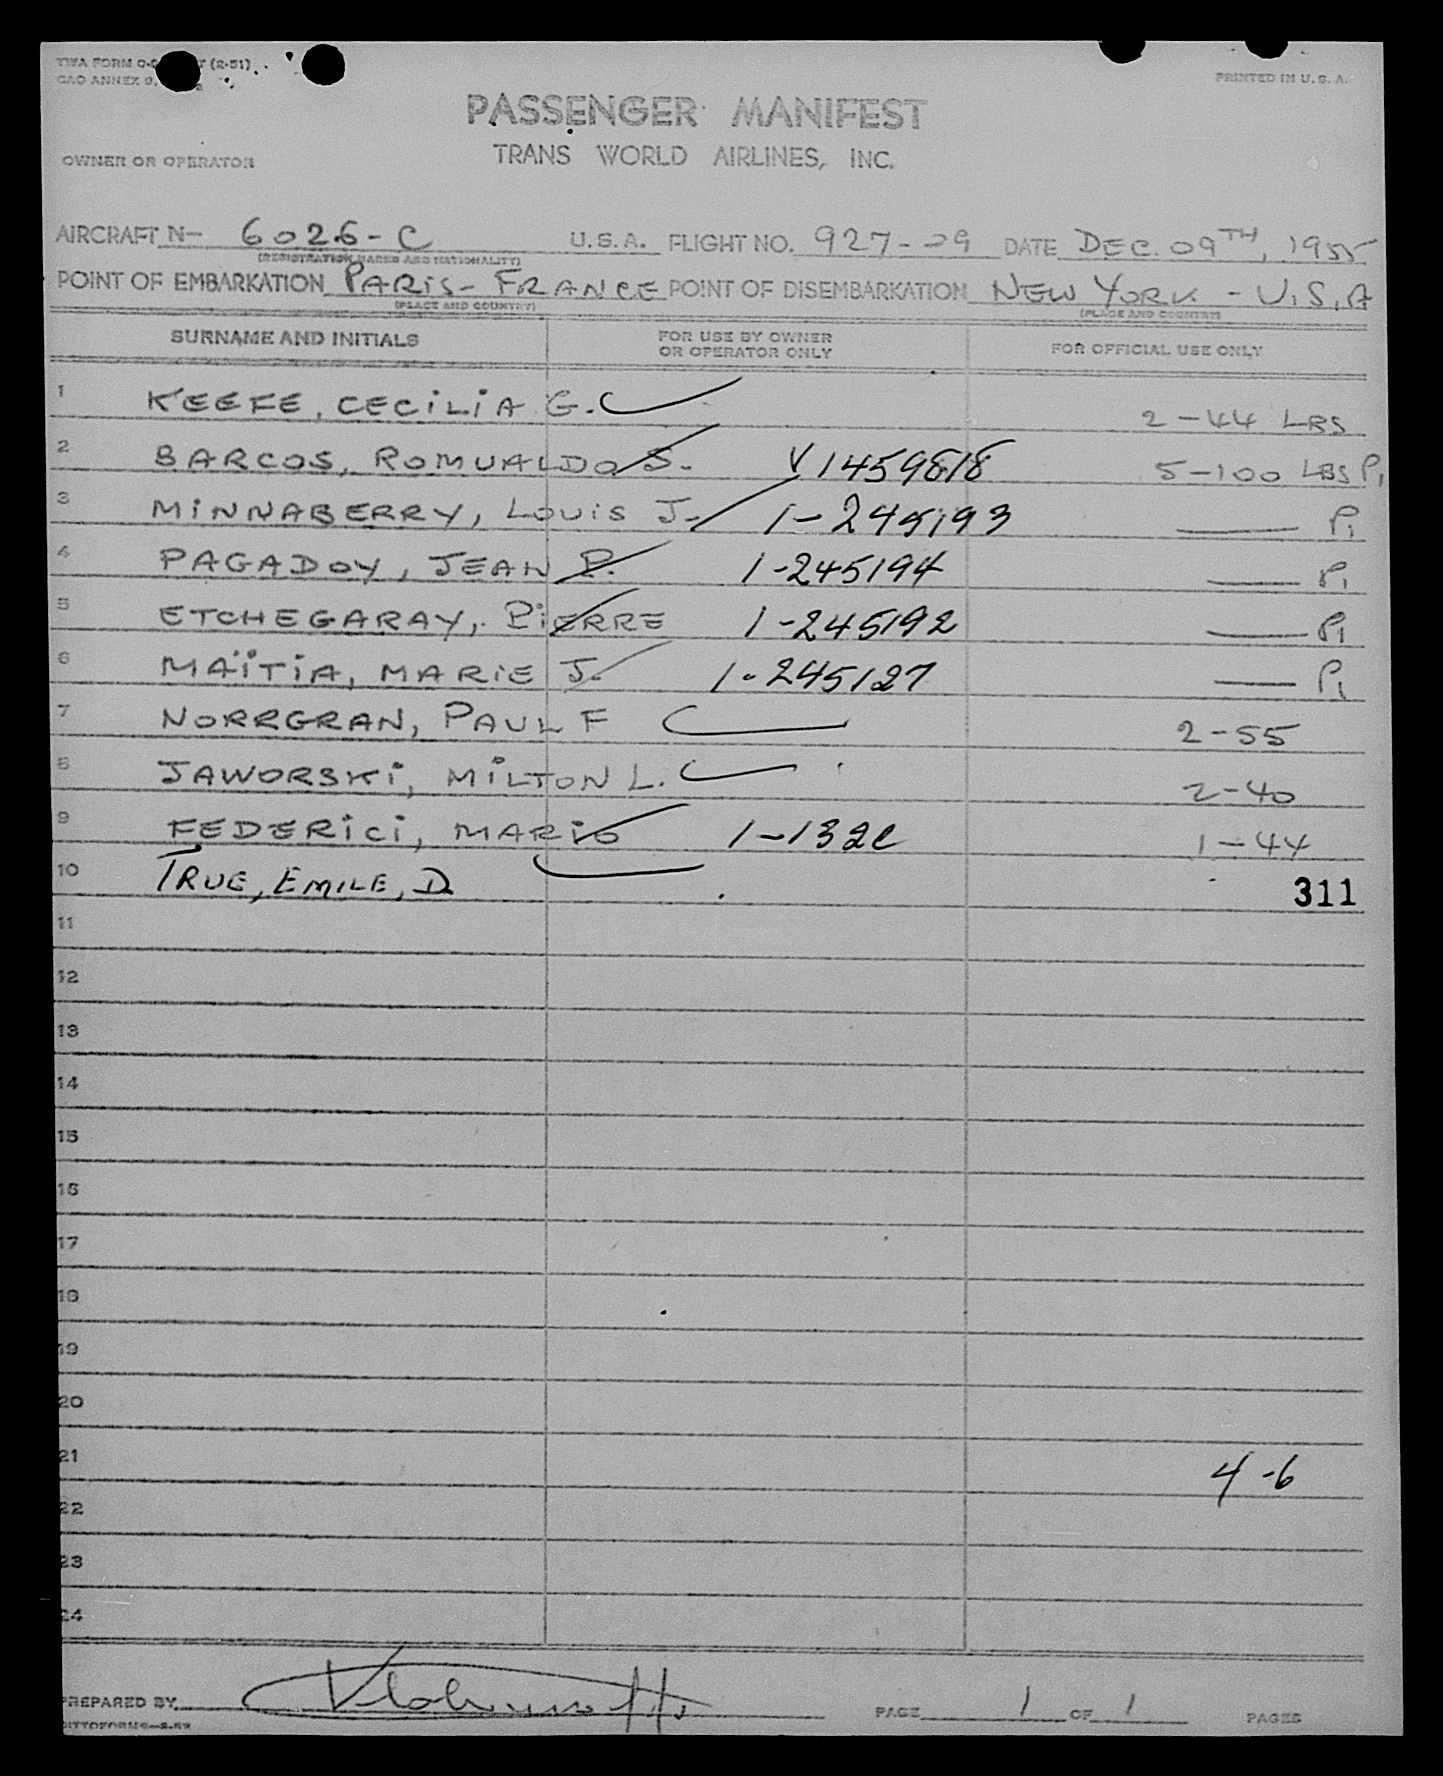 TWA FORM O- (2-51)
PRINTED IN U. S. A.
CAO ANNEX 9,
PASSENGER MANIFEST
OWNER OR OPERATOR
TRANS WORLD AIRLINES, INC.
AIRCRAFT N- 6026-C U.S.A. FLIGHT NO. 927-09 DATE DEC. 09TH, 1955
(REGISTRATION MARKS AND NATIONALITY)
POINT OF EMBARKATION PARIS - FRANCE POINT OF DISEMBARKATION NEW YORK - U.S.A
(PLACE AND COUNTRY) (PLACE AND COUNTRY)
SURNAME AND INITIALS FOR USE BY OWNER OR OPERATOR ONLY FOR OFFICIAL USE ONLY
1 KEEFE, CECILIA G. 2-44 LBS
2 BARCOS, ROMUALDO S. V1459818 5-100 LBS P1
3 MINNABERRY, LOUIS J. 1-245193 — P1
4 PAGADOY, JEAN P. 1-245194 — P1
5 ETCHEGARAY, PIERRE 1-245192 — P1
6 MAÏTIA, MARIE J. 1-245127 — P1
7 NORRGRAN, PAUL F 2-55
8 JAWORSKI, MILTON L. 2-40
9 FEDERICI, MARIO 1-44
10 TRUE, EMILE, D 311
11
12
13
14
15
16
17
18
19
20
21 4-6
22
23
24
PREPARED BY PAGE 1 OF 1 PAGES